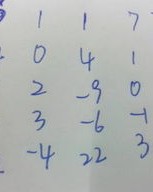 1 1 7
0 4 1
2 -9 0
3 -6 -1
-4 22 3